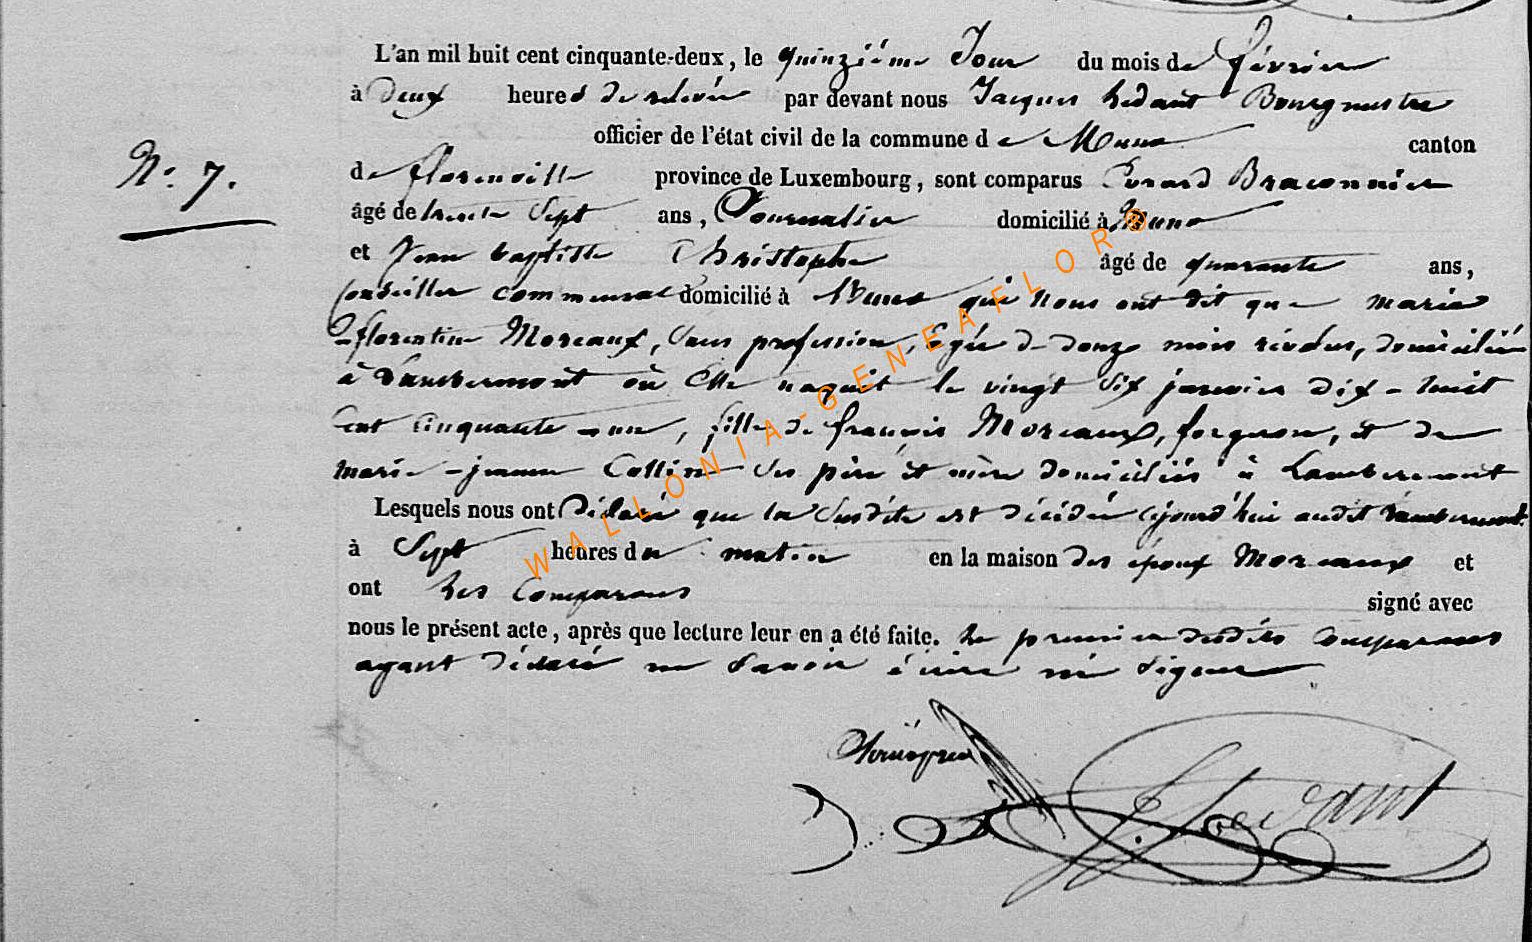 L'an mil huit cent cinquante-deux, le quinzième Jour du mois de février
à Deux heures de relevée par devant nous Jacques hedant Bourgmestre
officier de l'état civil de la commune de Muno canton
N.° 7. de florenville province de Luxembourg, sont comparus Evrard Braconnier
âgé de trente Sept ans, Journalier domicilié à Muno
et Jean baptiste Christophe âgé de quarante ans,
Conseiller communal domicilié à Muno qui nous ont dit que marie
florentine Moreaux, Sans profession, Agée de douze mois révolus, domiciliée
à Lambermont où Elle naquit le vingt Six janvier dix-huit
Cent Cinquante-un, fille de françois Moreaux, forgeron, et de
marie-jeanne Collin Ses père et mère domiciliés à Lambermont
Lesquels nous ont Déclaré que la Susdite est décédée cejourd'hui audit Lambermont
à Sept heures du matin en la maison des époux Moreaux et
ont les Comparans signé avec
nous le présent acte, après que lecture leur en a été faite. Le premier desdits Comparans
ayant Déclaré ne Savoir écrire ni Signer
WALLONIA-GENEAFLOR®